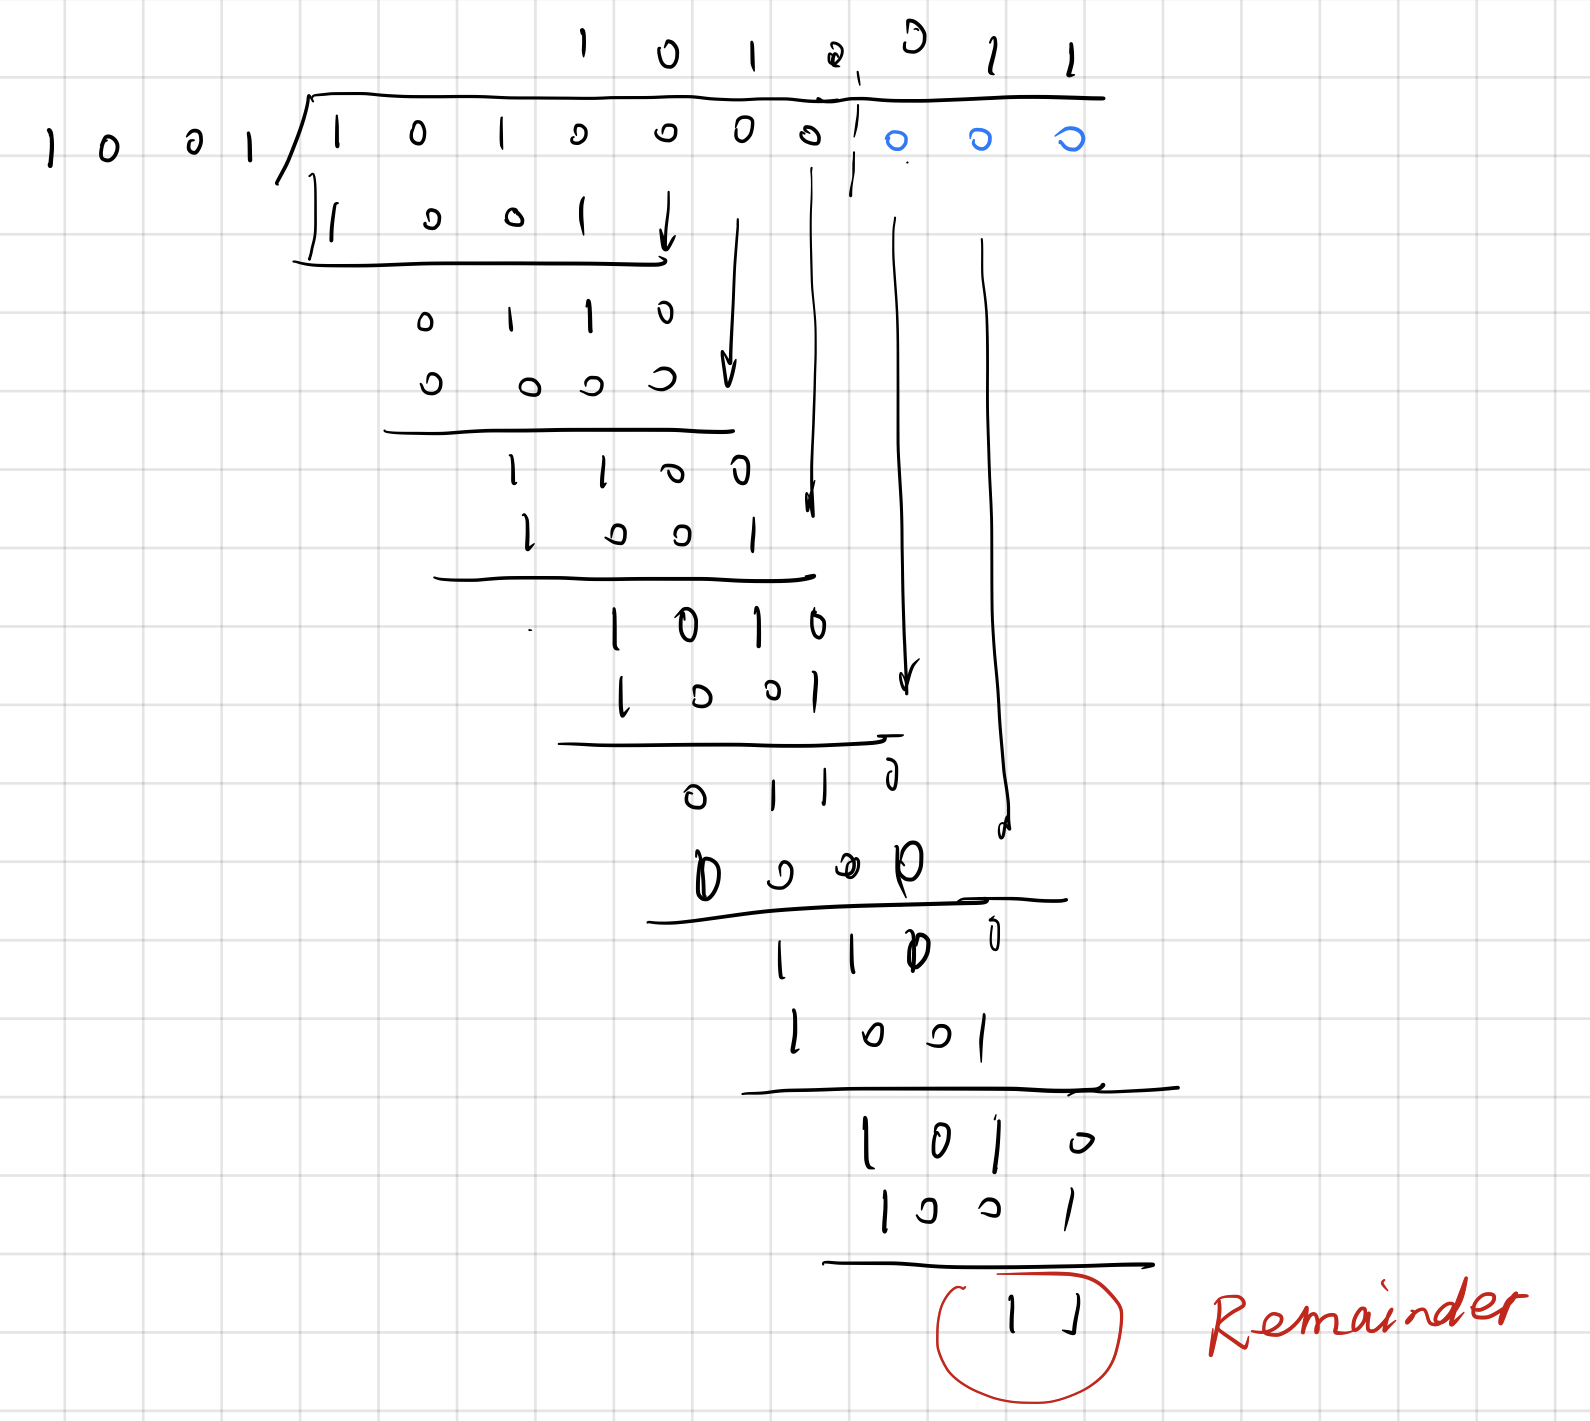 1 0 1 0 . 0 1 1
1 0 0 1 1 0 1 0 0 0 0 0 0 0
1 0 0 1
0 1 1 0
0 0 0 0
1 1 0 0
1 0 0 1
1 0 1 0
1 0 0 1
0 1 1 0
0 0 0 0
1 1 0 0
1 0 0 1
1 0 1 0
1 0 0 1
1 1 Remainder